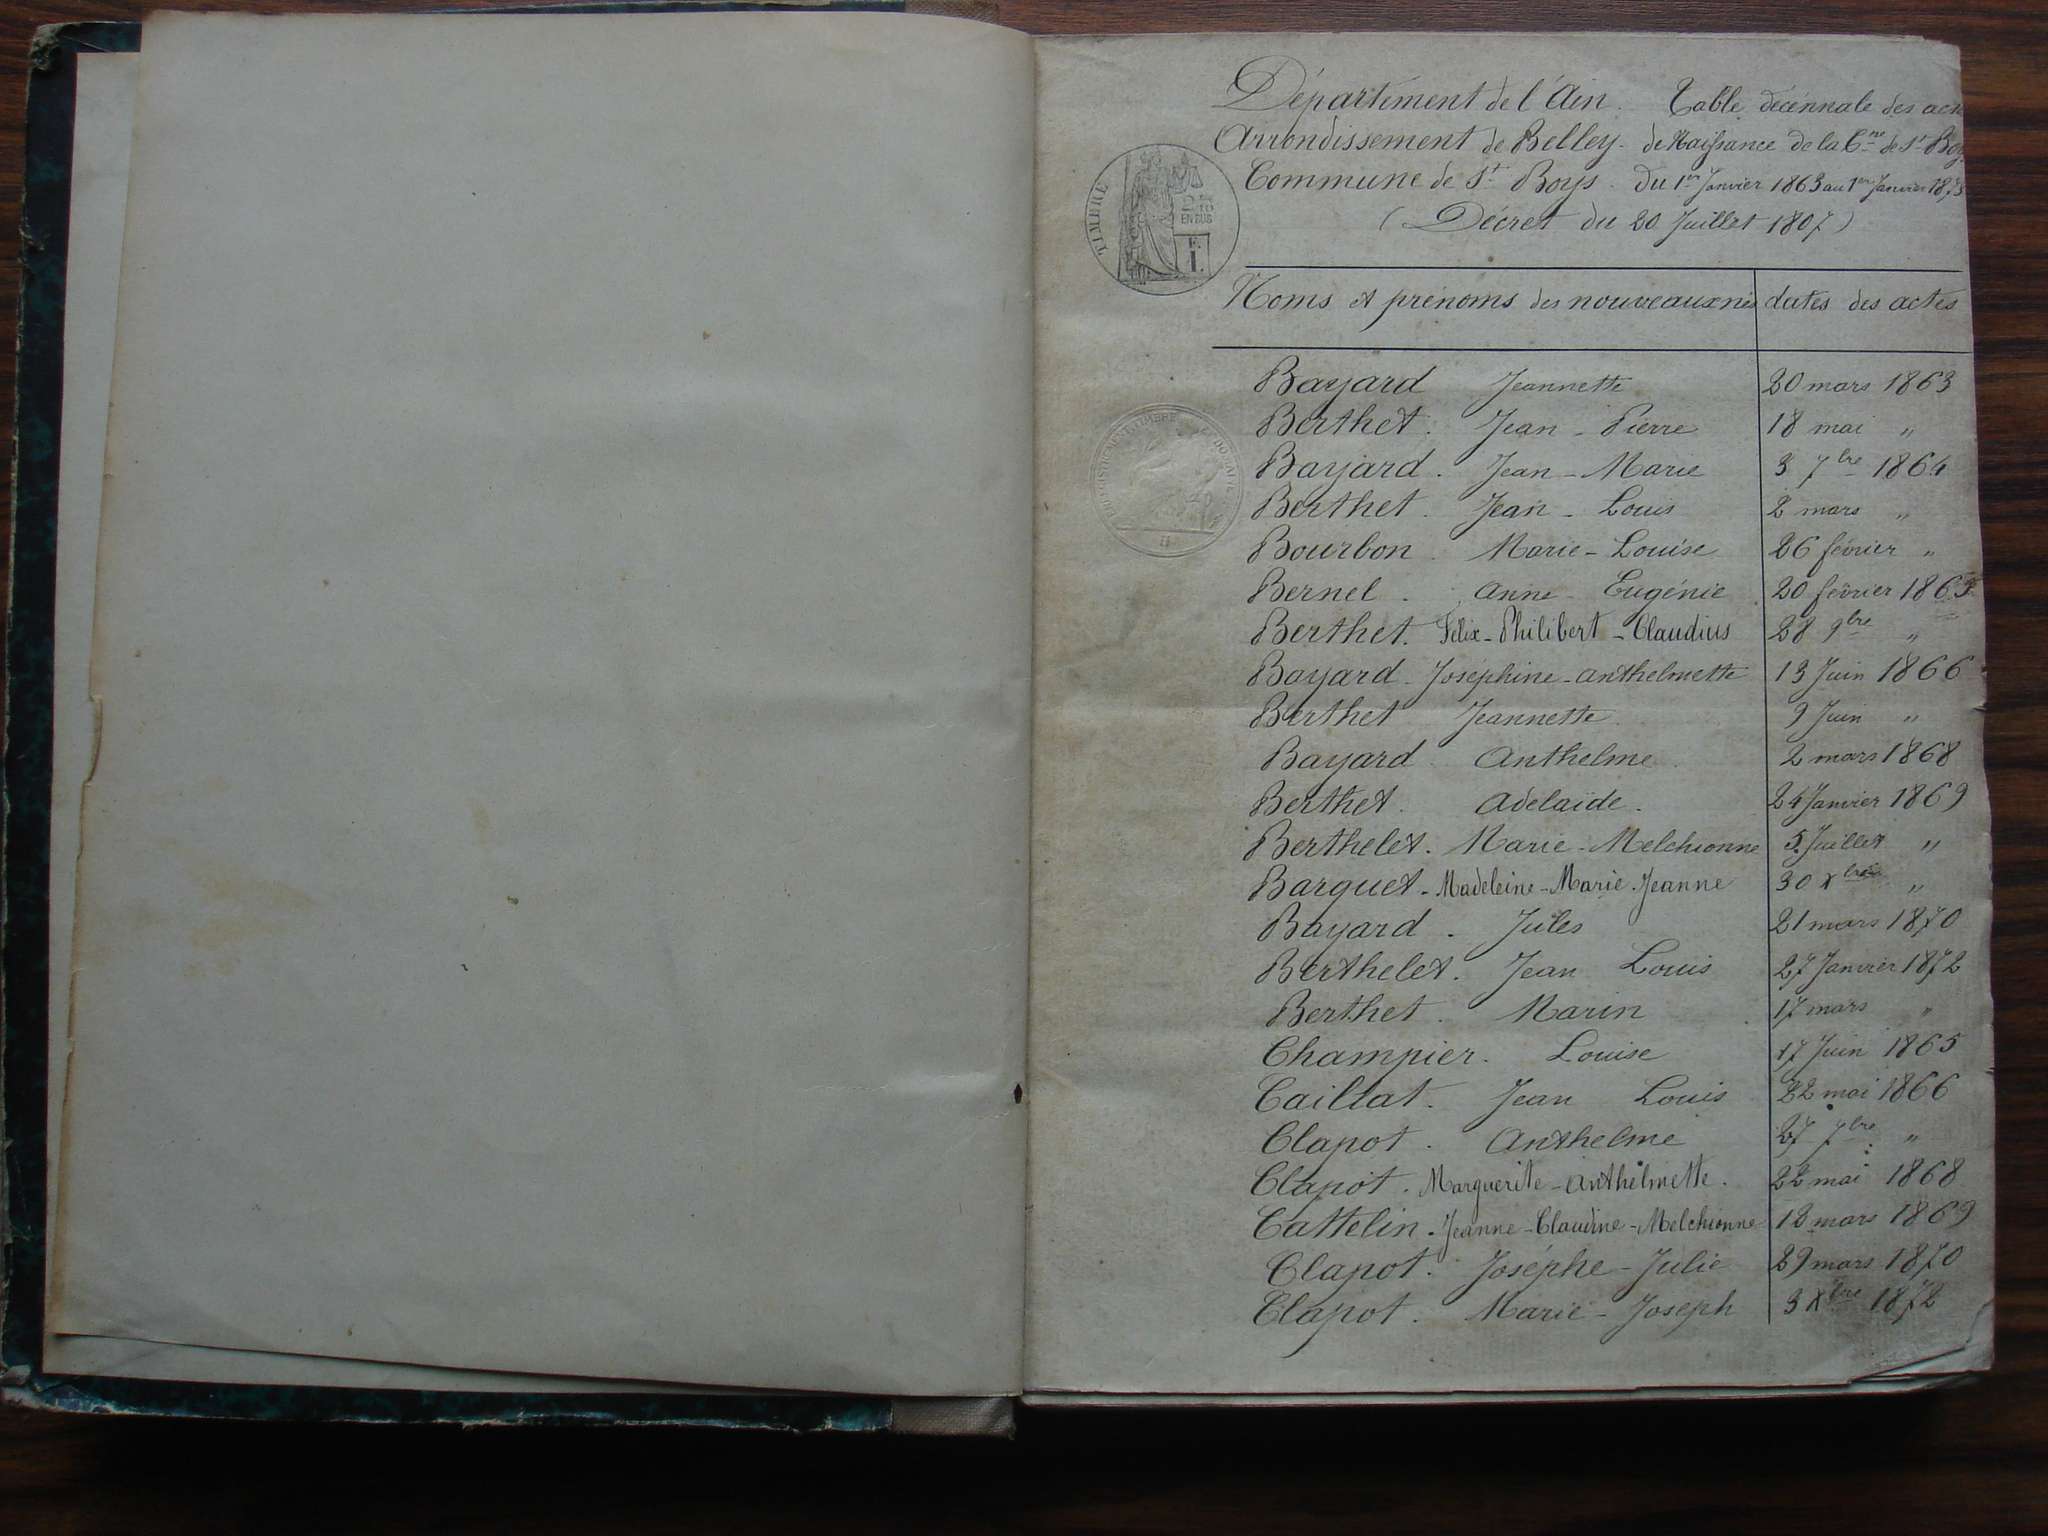 Département de l'Ain. Table décennale des acte
Arrondissement de Belley. de Naissance de la Cne de St Boy
Commune de St Boys. du 1er Janvier 1863 au 1er Janvier 1873
(Décret du 20 Juillet 1807)
TIMBRE
2
10
EN SUS
F.
1.
Noms et prénoms des nouveaux nés dates des actes
Bayard Jeannette 20 mars 1863
Berthet. Jean-Pierre 18 mai "
Bayard. Jean-Marie 3 7bre 1864
Berthet. Jean-Louis 2 mars "
Bourbon. Marie-Louise 26 février "
Bernel. Anne-Eugénie 20 février 1865
Berthet. Félix-Philibert-Claudius 28 9bre "
Bayard-Joséphine-anthelmette 13 Juin 1866
Berthet Jeannette 9 Juin "
Bayard. Anthelme. 2 mars 1868
Berthet. Adelaïde. 24 Janvier 1869
Berthelet. Marie-Melchionne 5 Juillet "
Barquet-Madeleine-Marie-Jeanne 30 xbre "
Bayard. Jules 21 mars 1870
Berthelet. Jean Louis 27 Janvier 1872
Berthet. Marin 17 mars "
Champier. Louise 17 Juin 1865
Caillat. Jean Louis 22 mai 1866
Clapot. Anthelme 27 7bre "
Clapot. Marguerite-Anthelmette. 22 mai 1868
Cattelin. Jeanne-Claudine-Melchionne 18 mars 1869
Clapot. Joséphe-Julie 29 mars 1870
Clapot. Marie-Joseph 3 Xbre 1872